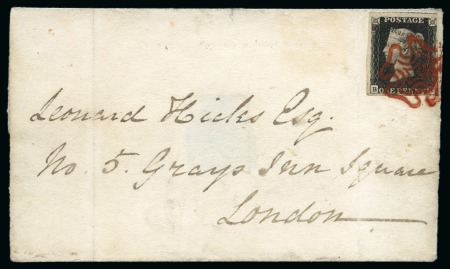 POSTAGE
Leonard Hicks Esq.
No. 5. Grays Inn Square
London